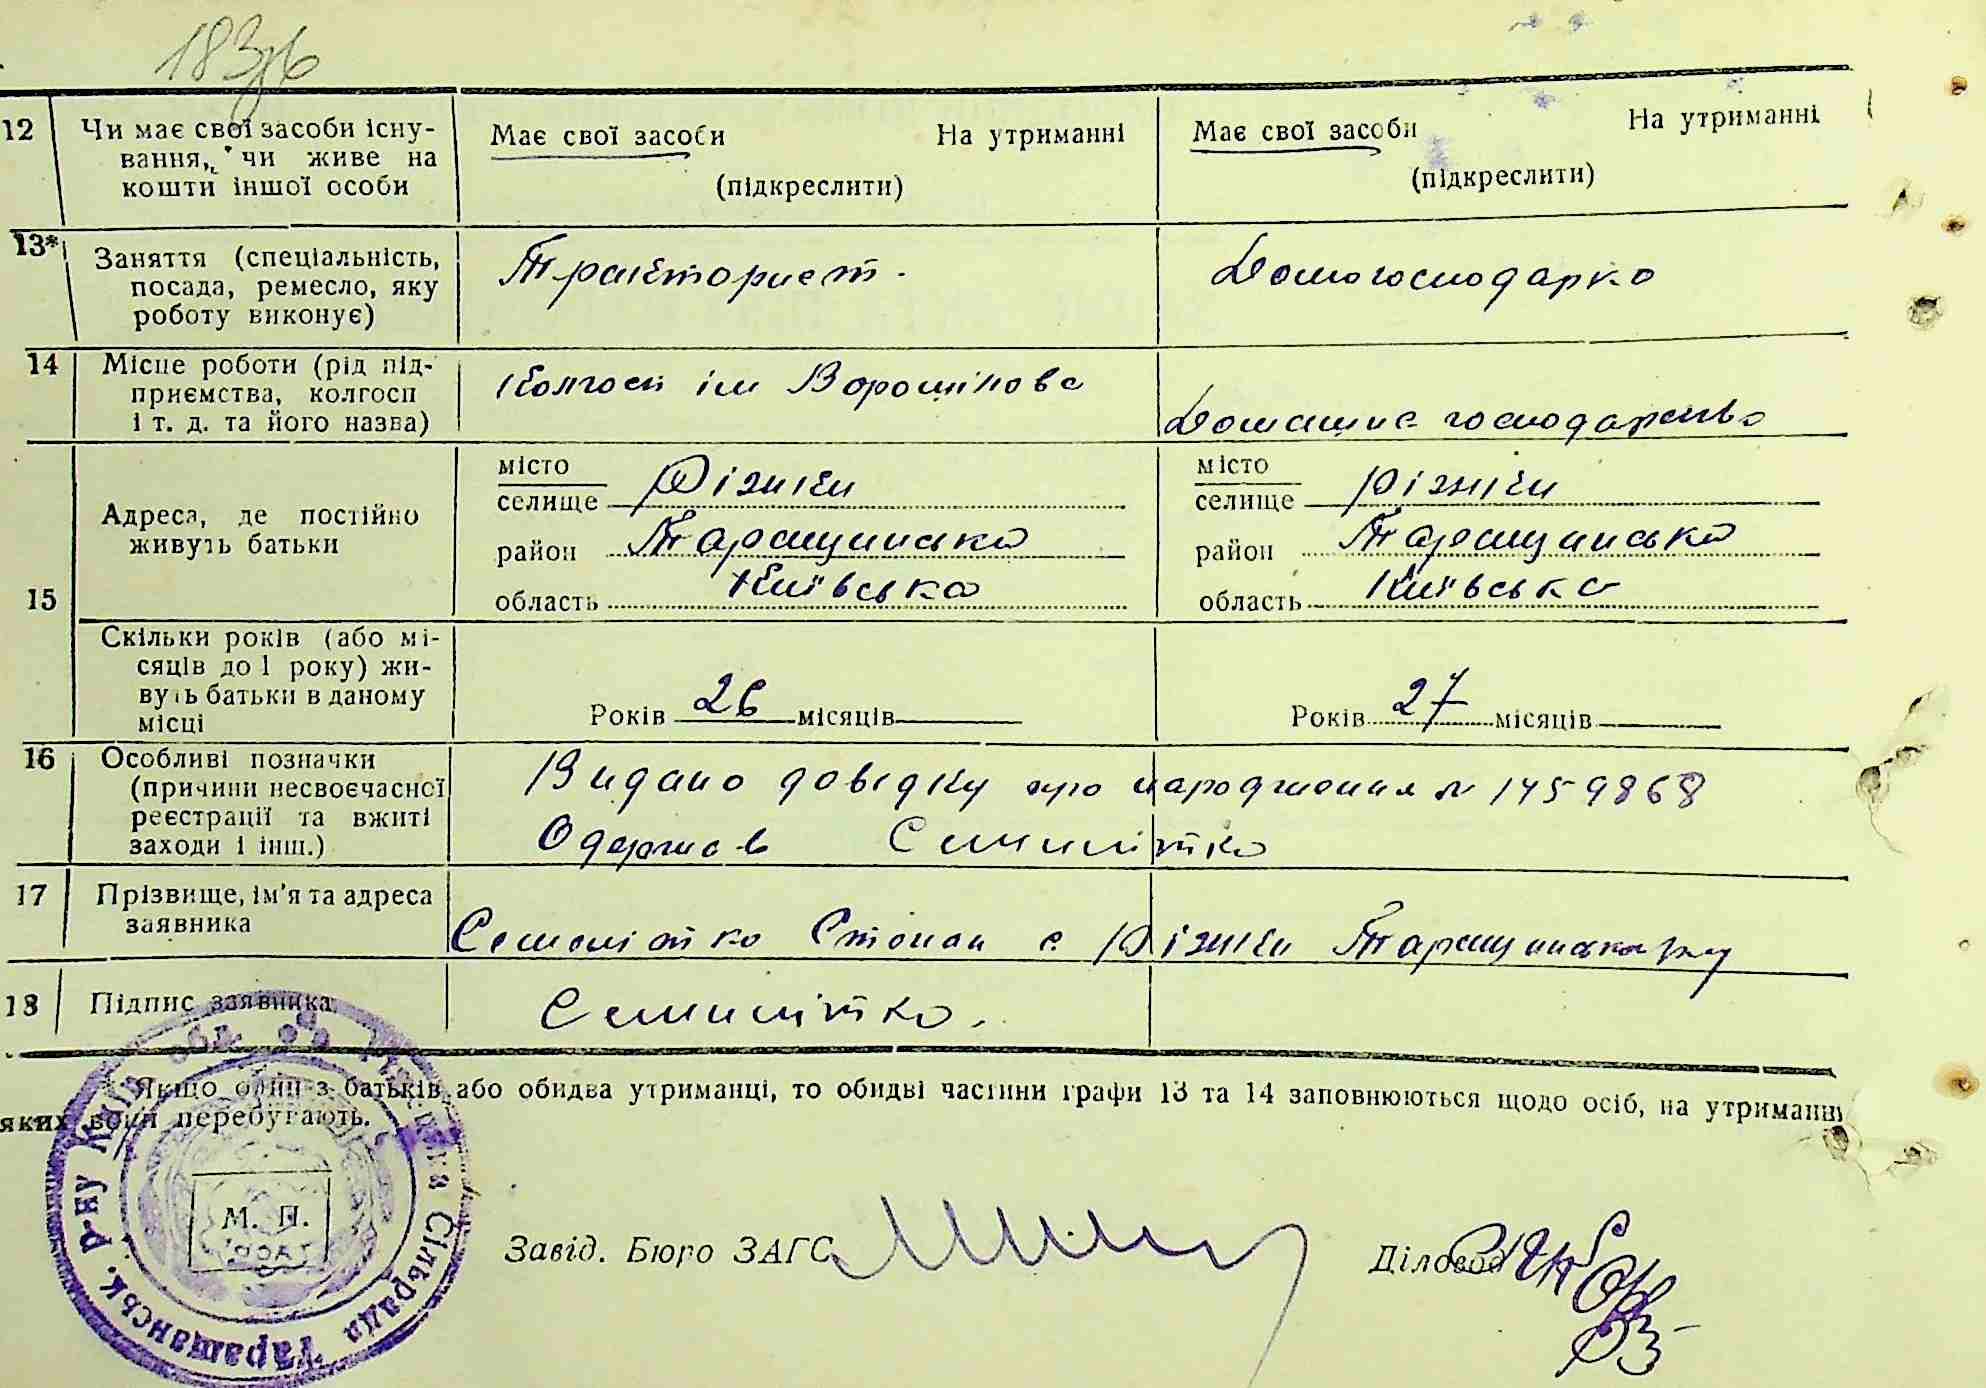 12 Чи має свої засоби існу-
вання, чи живе на
кошти іншої особи
Має свої засоби На утриманні
(підкреслити)
Має свої засоби На утриманні
(підкреслити)
13* Заняття (спеціальність,
посада, ремесло, яку
роботу виконує)
Тракторист.
Домогосподарка
14 Місце роботи (рід під-
приємства, колгосп
і т. д. та його назва)
Колгосп ім Ворошилова
Домашнє господарство
15 Адреса, де постійно
живуть батьки
місто
селище Ріжки
район Таращинська
область Київська
місто
селище Ріжки
район Таращинська
область Київська
Скільки років (або мі-
сяців до 1 року) жи-
вуть батьки в даному
місці
Років 26 місяців
Років 27 місяців
16 Особливі позначки
(причини несвоєчасної
реєстрації та вжиті
заходи і інш.)
Видано довідку про народження № 1459868
Одержав Семилітко
17 Прізвище, ім'я та адреса
заявника
Семилітко Степан с Ріжки Таращинська
18 Підпис заявника
Семилітко.
Якщо один з батьків або обидва утриманці, то обидві частини графи 13 та 14 заповнюються щодо осіб, на утриманні
яких вони перебувають.
М. П.
Сільрада Таращанськ. р-ну Київ. обл.
Завід. Бюро ЗАГС
Діловод